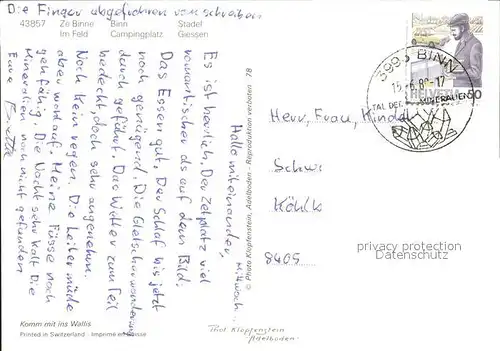 Die Finger abgefroren vom schreiben
43857 Ze Binne Binn Stadel
Im Feld Campingplatz Giessen
Mittwoch
Hallo miteinander,
Es ist herrlich. Der Zeltplatz viel
romantischer als auf dem Bild.
Das Essen gut. Der Schlaf bis jetzt
noch genügend. Die Gletscherwanderung
durch geführt. Das Wetter zum Teil
bedeckt, doch sehr angenehm.
Noch kein regen. Die Leiber müde
aber wohl auf. Meine Füsse noch
gehfähig. Die Nacht sehr kalt Die
Mineralien noch nicht gefunden
Eure
© Photo Klopfenstein, Adelboden - Reproduktion verboten 78
HELVETIA 50
3995 BINN
TAL DER MINERALIEN
Herr, Frau, Kinder
Köhlk
8405
privacy protection
Datenschutz
Komm mit ins Wallis
Printed in Switzerland - Imprimé en Suisse
Phot Klopfenstein
Adelboden